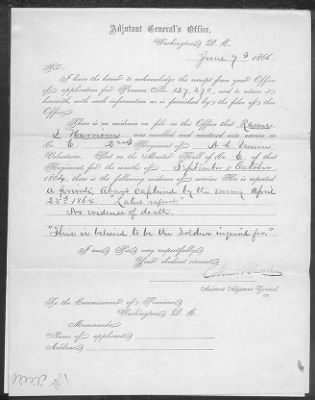 Adjutant General's Office,
Washington, D. C.
June 7th 1866
Sir:
I have the honor to acknowledge the receipt from your Office
of application for Pension No. 127.270, and to return it
herewith, with such information as is furnished by the files of this
Office.
There is no evidence on file in this Office that
was enrolled and mustered into service in
Co. E, 2nd Regiment of N C Union
Volunteers. But on the Muster Roll of Co. E, of that
Regiment for the months of September & October
1864, there is the following evidence of service: He is reported
a private, absent captured by the enemy April
1864. "Latest report"
No evidence of death.
"This is believed to be the Soldier inquired for."
I am Sir, very respectfully,
Your obedient servant,
Assistant Adjutant General.
To the Commissioner of Pensions,
Washington, D. C.
Memoranda:
Name of applicant,
Address,